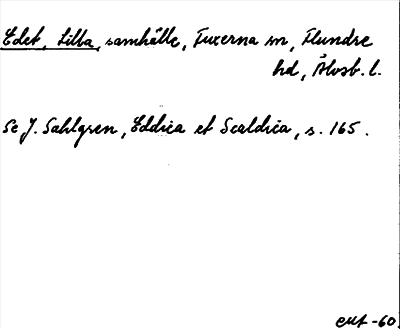 Edet, Lilla, samhälle, Fuxerna sn, Flundre
hd, Älvsb. l.
Se J. Sahlgren, Eddica et Scaldica, s. 165.
-60